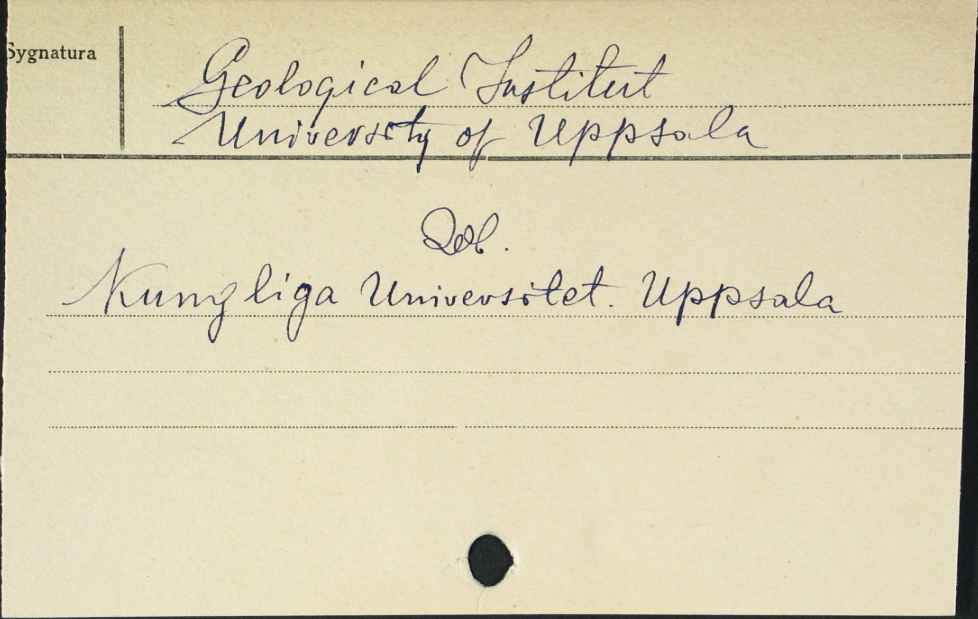 Sygnatura
Geological Institut
University of Uppsala
Zob.
Kungliga Universitet. Uppsala